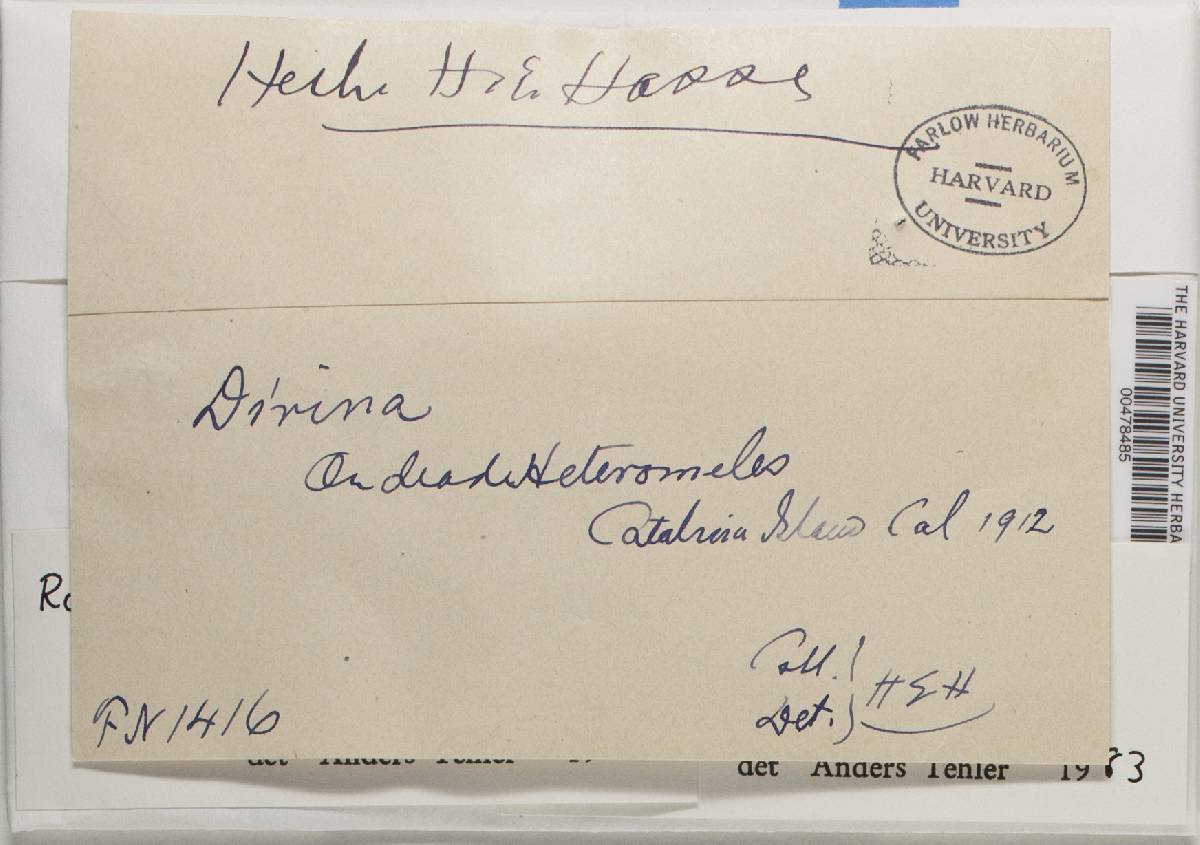 Herb. H. E. Hasse
FARLOW HERBARIUM
HARVARD
UNIVERSITY
Dirina
On dead Heteromeles
Catalina Island Cal 1912
Coll.!
Det.
HEH
FN1416
THE HARVARD UNIVERSITY HERBA
00478485
det Anders Tehler 19
det Anders Tehler 1983